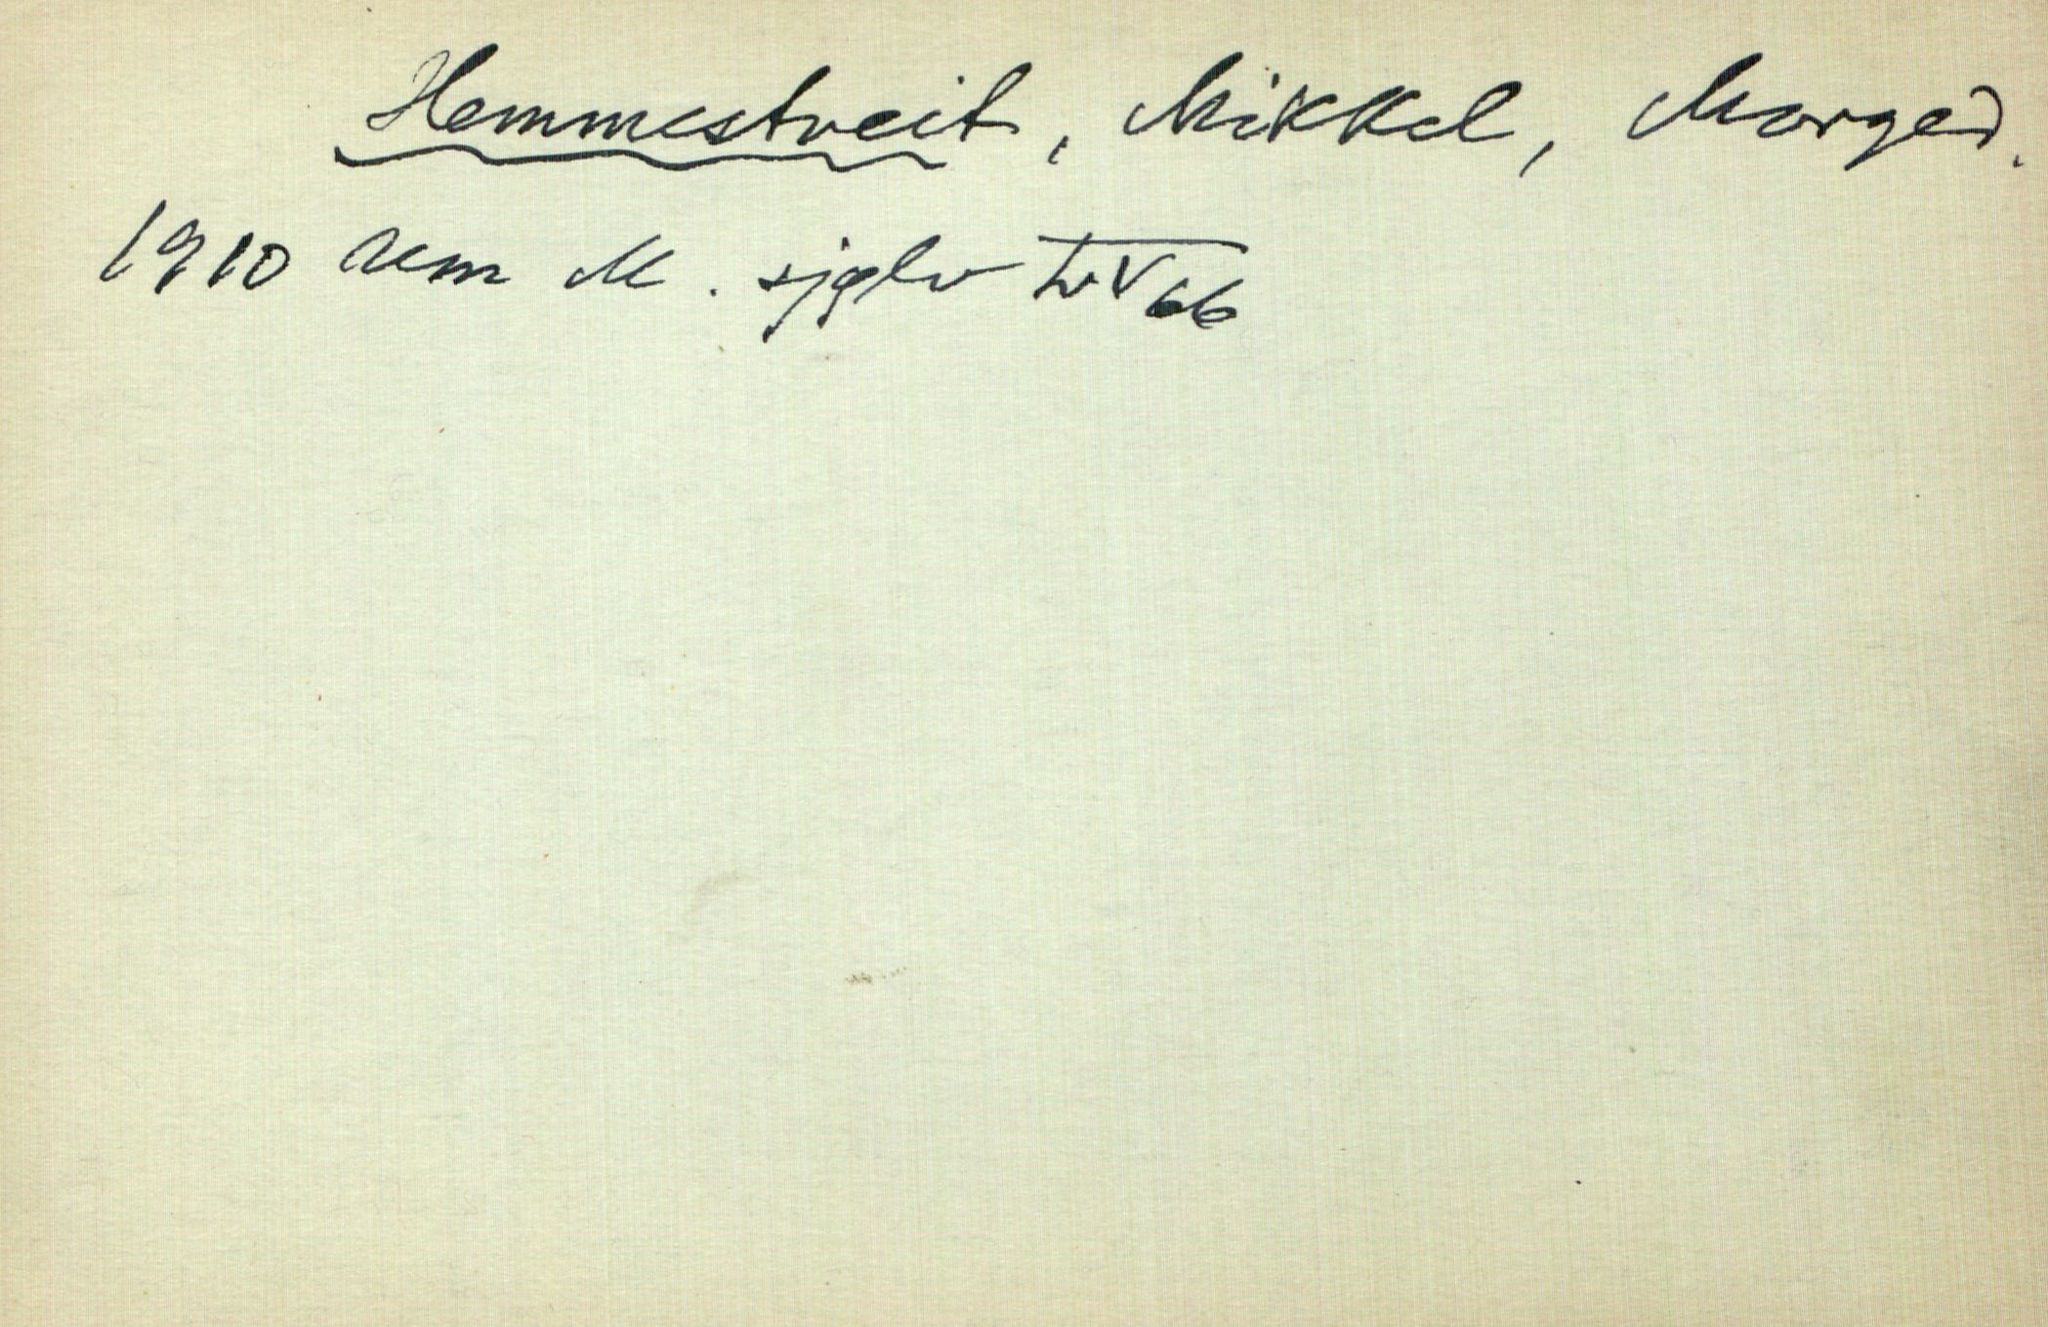 Hemmestveit, Mikkel, Morged.
1910 um M. sjølv TvV 66